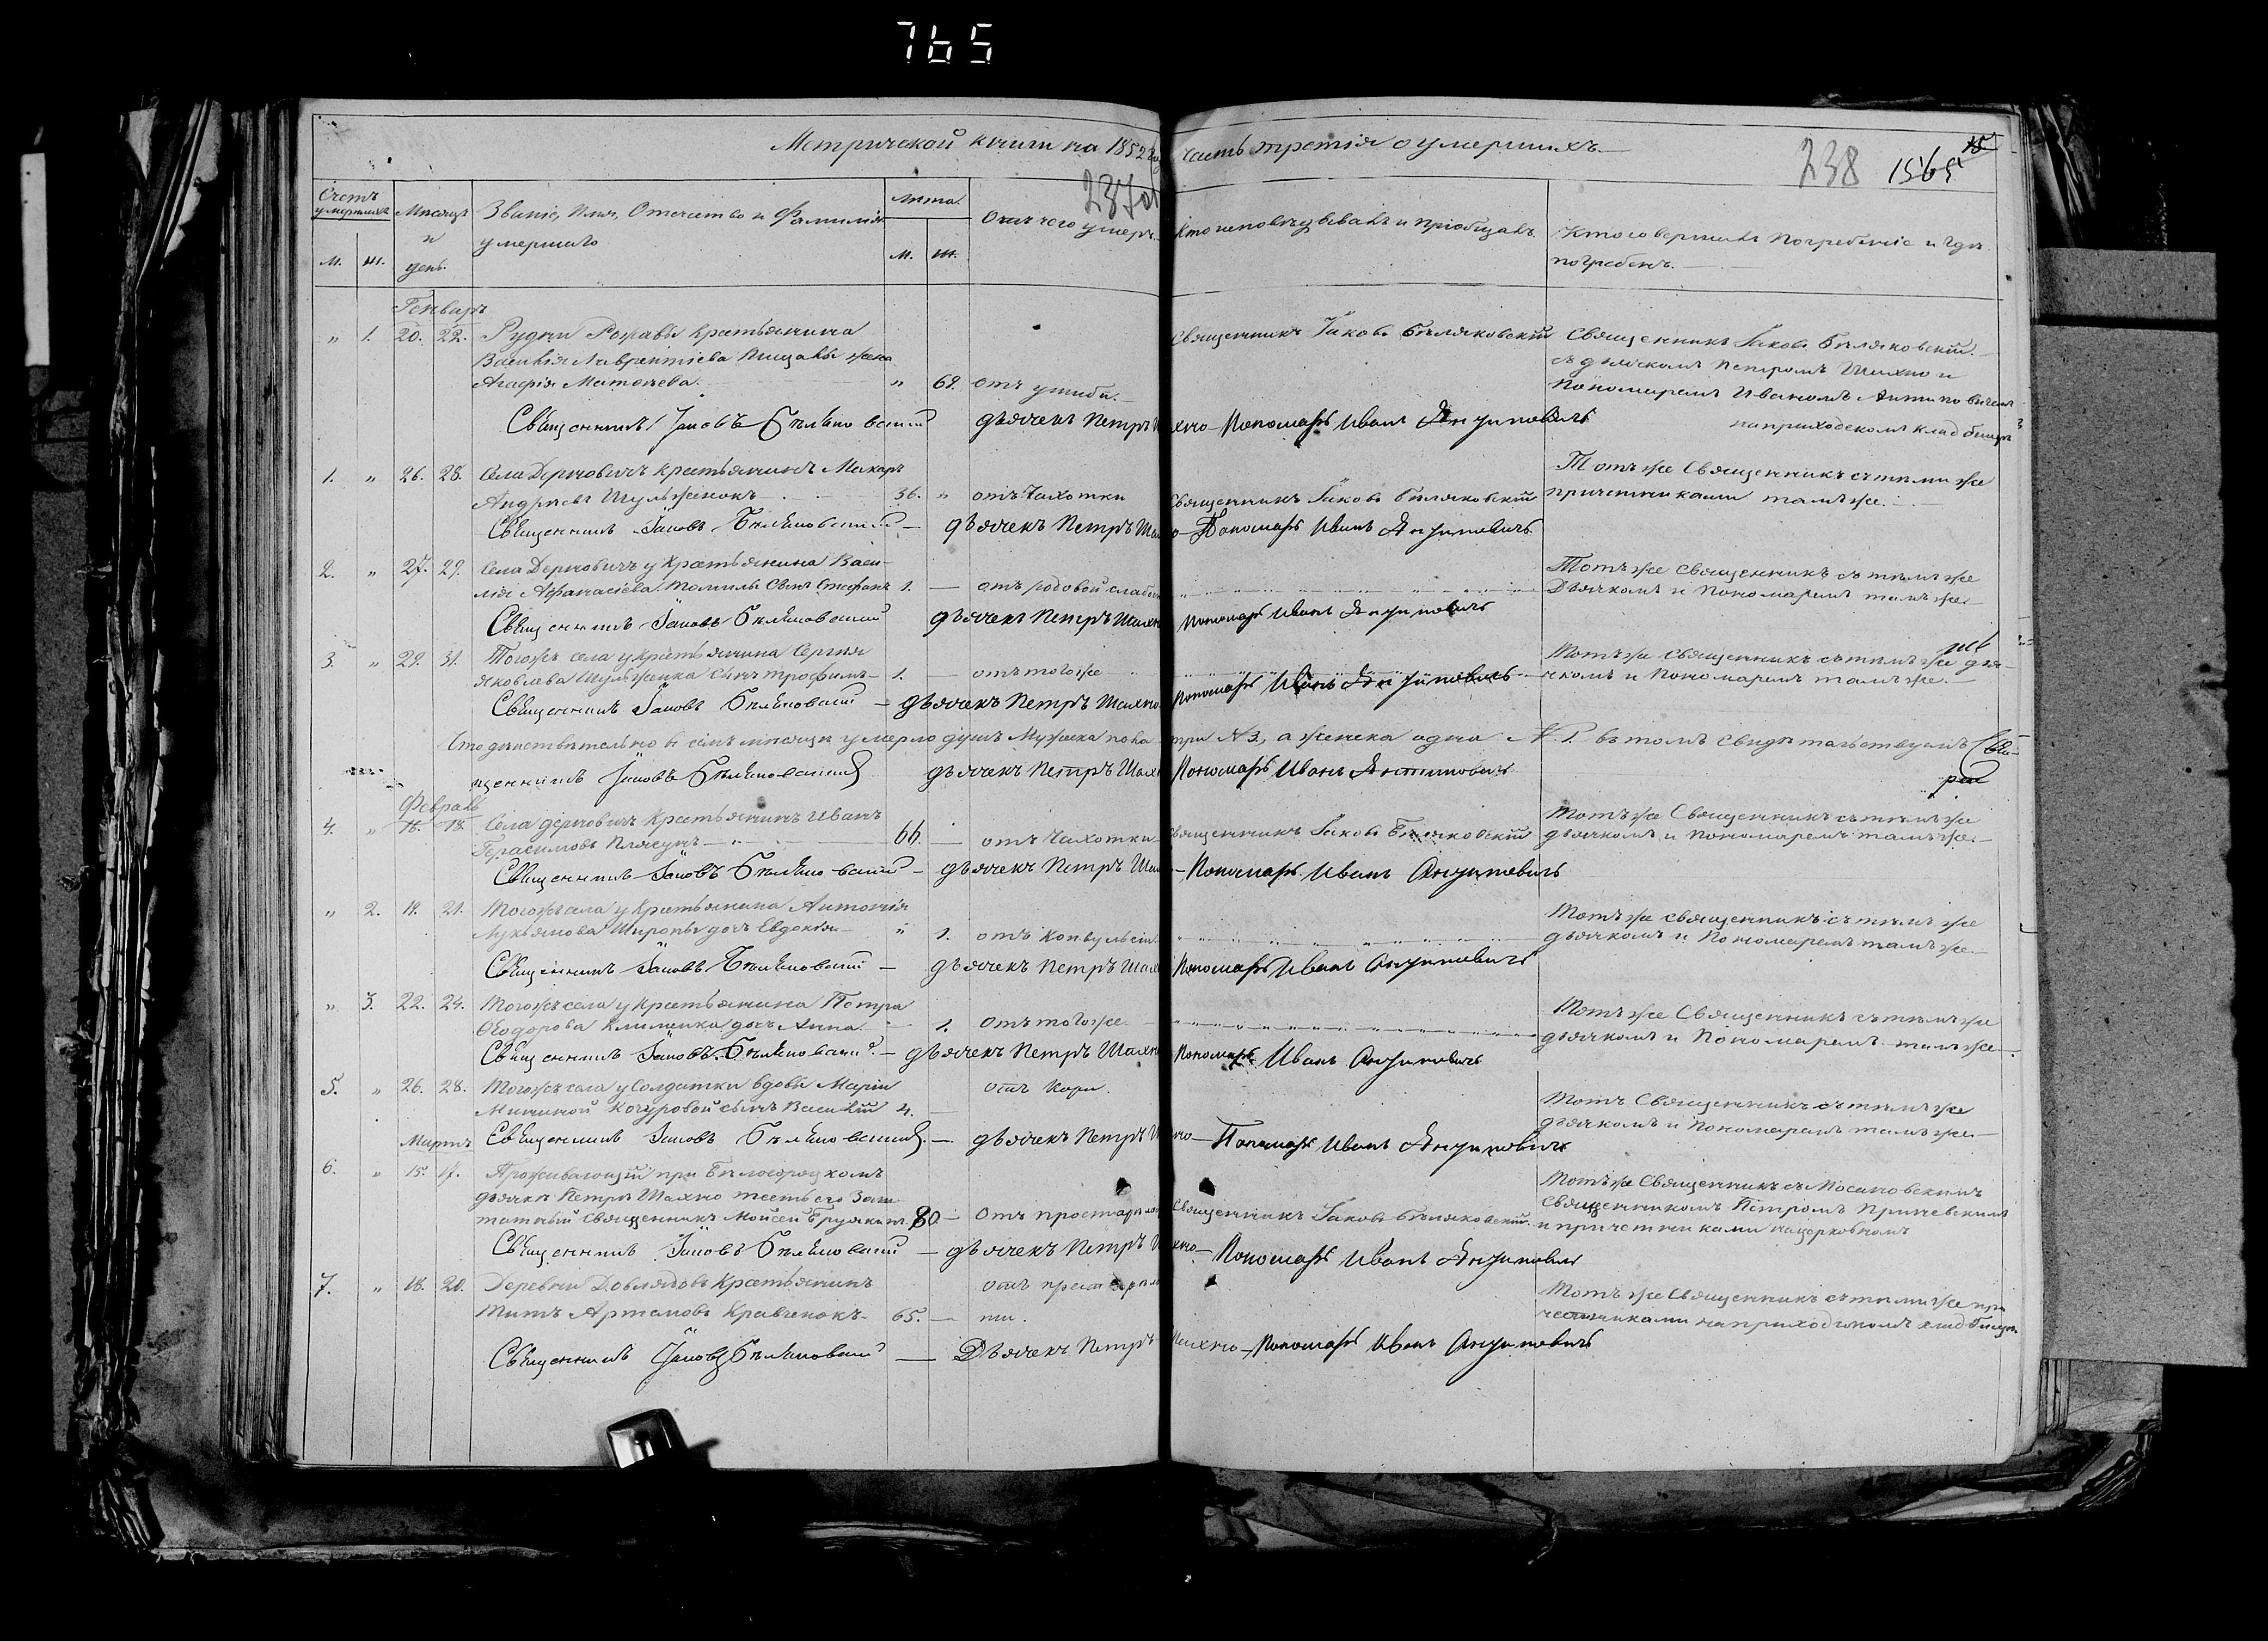 765
Метрической книги на 1852 год часть третія о умершихъ.
237об
238 1565
Счетъ умершихъ
Мѣсяцъ и день.
Званіе, Имя, Отечество и Фамилія умершаго
Лѣта.
Отъ чего умеръ.
Кто исповѣдывалъ и пріобщалъ.
Кто совершалъ погребеніе и гдѣ погребенъ.
м. ж.
м. ж.
Генварь
" 1. 20. 22. Рудни Крестьянина
Василія Лаврентіева жена
Агафія Матѳеева. " 68. отъ ушиба.
Священникъ Іаковъ Бѣляковскій
Священникъ Іаковъ Бѣляковскій.
съ дьячкомъ Петромъ Шахно и
Пономаремъ Иваномъ Антиповичемъ
на приходскомъ кладбищѣ
Священникъ Іаковъ Бѣляковскій дьячекъ Петръ Шахно Пономарь Иванъ Антиповичъ
1. " 26. 28. Села Дерновичъ Крестьянинъ Макаръ
Андреевъ Шульженокъ 36. " отъ Чахотки
Священникъ Іаковъ Бѣляковскій
Тотъ же Священникъ съ тѣми же
причетниками тамъ же.
Священникъ Іаковъ Бѣляковскій дьячекъ Петръ Шахно Пономарь Иванъ Антиповичъ
2. " 27. 29. Села Дерновичъ у Крестьянина Васи-
лія Афанасіева сынъ Стефанъ 1. — отъ родовой слабости
Тотъ же Священникъ съ тѣмъ же
Дьячкомъ и Пономаремъ тамъ же
Священникъ Іаковъ Бѣляковскій дьячекъ Петръ Шахно Пономарь Иванъ Антиповичъ
3. " 29. 31. Тогожъ села у Крестьянина Сергія
Яковлева Шульженка сынъ Трофимъ 1. отъ того же
Тотъ же Священникъ съ тѣмъ же дья-
чкомъ и Пономаремъ тамъ же.
Священникъ Іаковъ Бѣляковскій дьячекъ Петръ Шахно Пономарь Иванъ Антиповичъ
Что дѣйствительно въ семъ мѣсяцѣ умерло душъ Мужеска пола три № 3, а женска одна № 1. въ томъ свидѣтельствуемъ Свя-
щенникъ Іаковъ Бѣляковскій дьячекъ Петръ Шахно Пономарь Иванъ Антиповичъ
Февраль
4. " 16. 18. Села Дерновичъ Крестьянинъ Иванъ
Герасимовъ Плясунъ 66. — отъ Чахотки
Священникъ Іаковъ Бѣляковскій
Тотъ же Священникъ съ тѣмъ же
дьячкомъ и пономаремъ тамъ же
Священникъ Іаковъ Бѣляковскій дьячекъ Петръ Шахно Пономарь Иванъ Антиповичъ
" 2. 19. 21. Тогожъ села у Крестьянина Антонія
Лукьянова дочь Евдокія " 1. отъ Конвульсіи
Тотъ же Священникъ съ тѣмъ же
дьячкомъ и Пономаремъ тамъ же
Священникъ Іаковъ Бѣляковскій дьячекъ Петръ Шахно Пономарь Иванъ Антиповичъ
" 3. 22. 24. Тогожъ села у Крестьянина Петра
Ѳеодорова Клименка дочь Анна. 1. отъ того же
Тотъ же Священникъ съ тѣмъ же
дьячкомъ и Пономаремъ тамъ же
Священникъ Іаковъ Бѣляковскій дьячекъ Петръ Шахно Пономарь Иванъ Антиповичъ
5. " 26. 28. Тогожъ села у Солдатки вдовы Маріи
Мининой Кочуровой сынъ Василій 4. отъ Кори.
Тотъ Священникъ съ тѣмъ же
дьячкомъ и Пономаремъ тамъ же
Священникъ Іаковъ Бѣляковскій дьячекъ Петръ Шахно Пономарь Иванъ Антиповичъ
Мартъ
6. " 15. 17. Проживающій при
дьячкѣ Петрѣ Шахно тесть его Заш-
татный Священникъ Моисей 80 — отъ престарѣлости
Священникъ Іаковъ Бѣляковскій
Тотъ же Священникъ съ
священникомъ Петромъ
и причетниками на церковномъ
Священникъ Іаковъ Бѣляковскій дьячекъ Петръ Шахно Пономарь Иванъ Антиповичъ
7. " 18. 20. Деревни Довлядовъ Крестьянинъ
Титъ Артемовъ Кравченокъ 65. — отъ престарѣлос-
ти.
Тотъ же Священникъ съ тѣми же при-
четниками на приходскомъ кладбищѣ
Священникъ Іаковъ Бѣляковскій Дьячекъ Петръ Шахно Пономарь Иванъ Антиповичъ